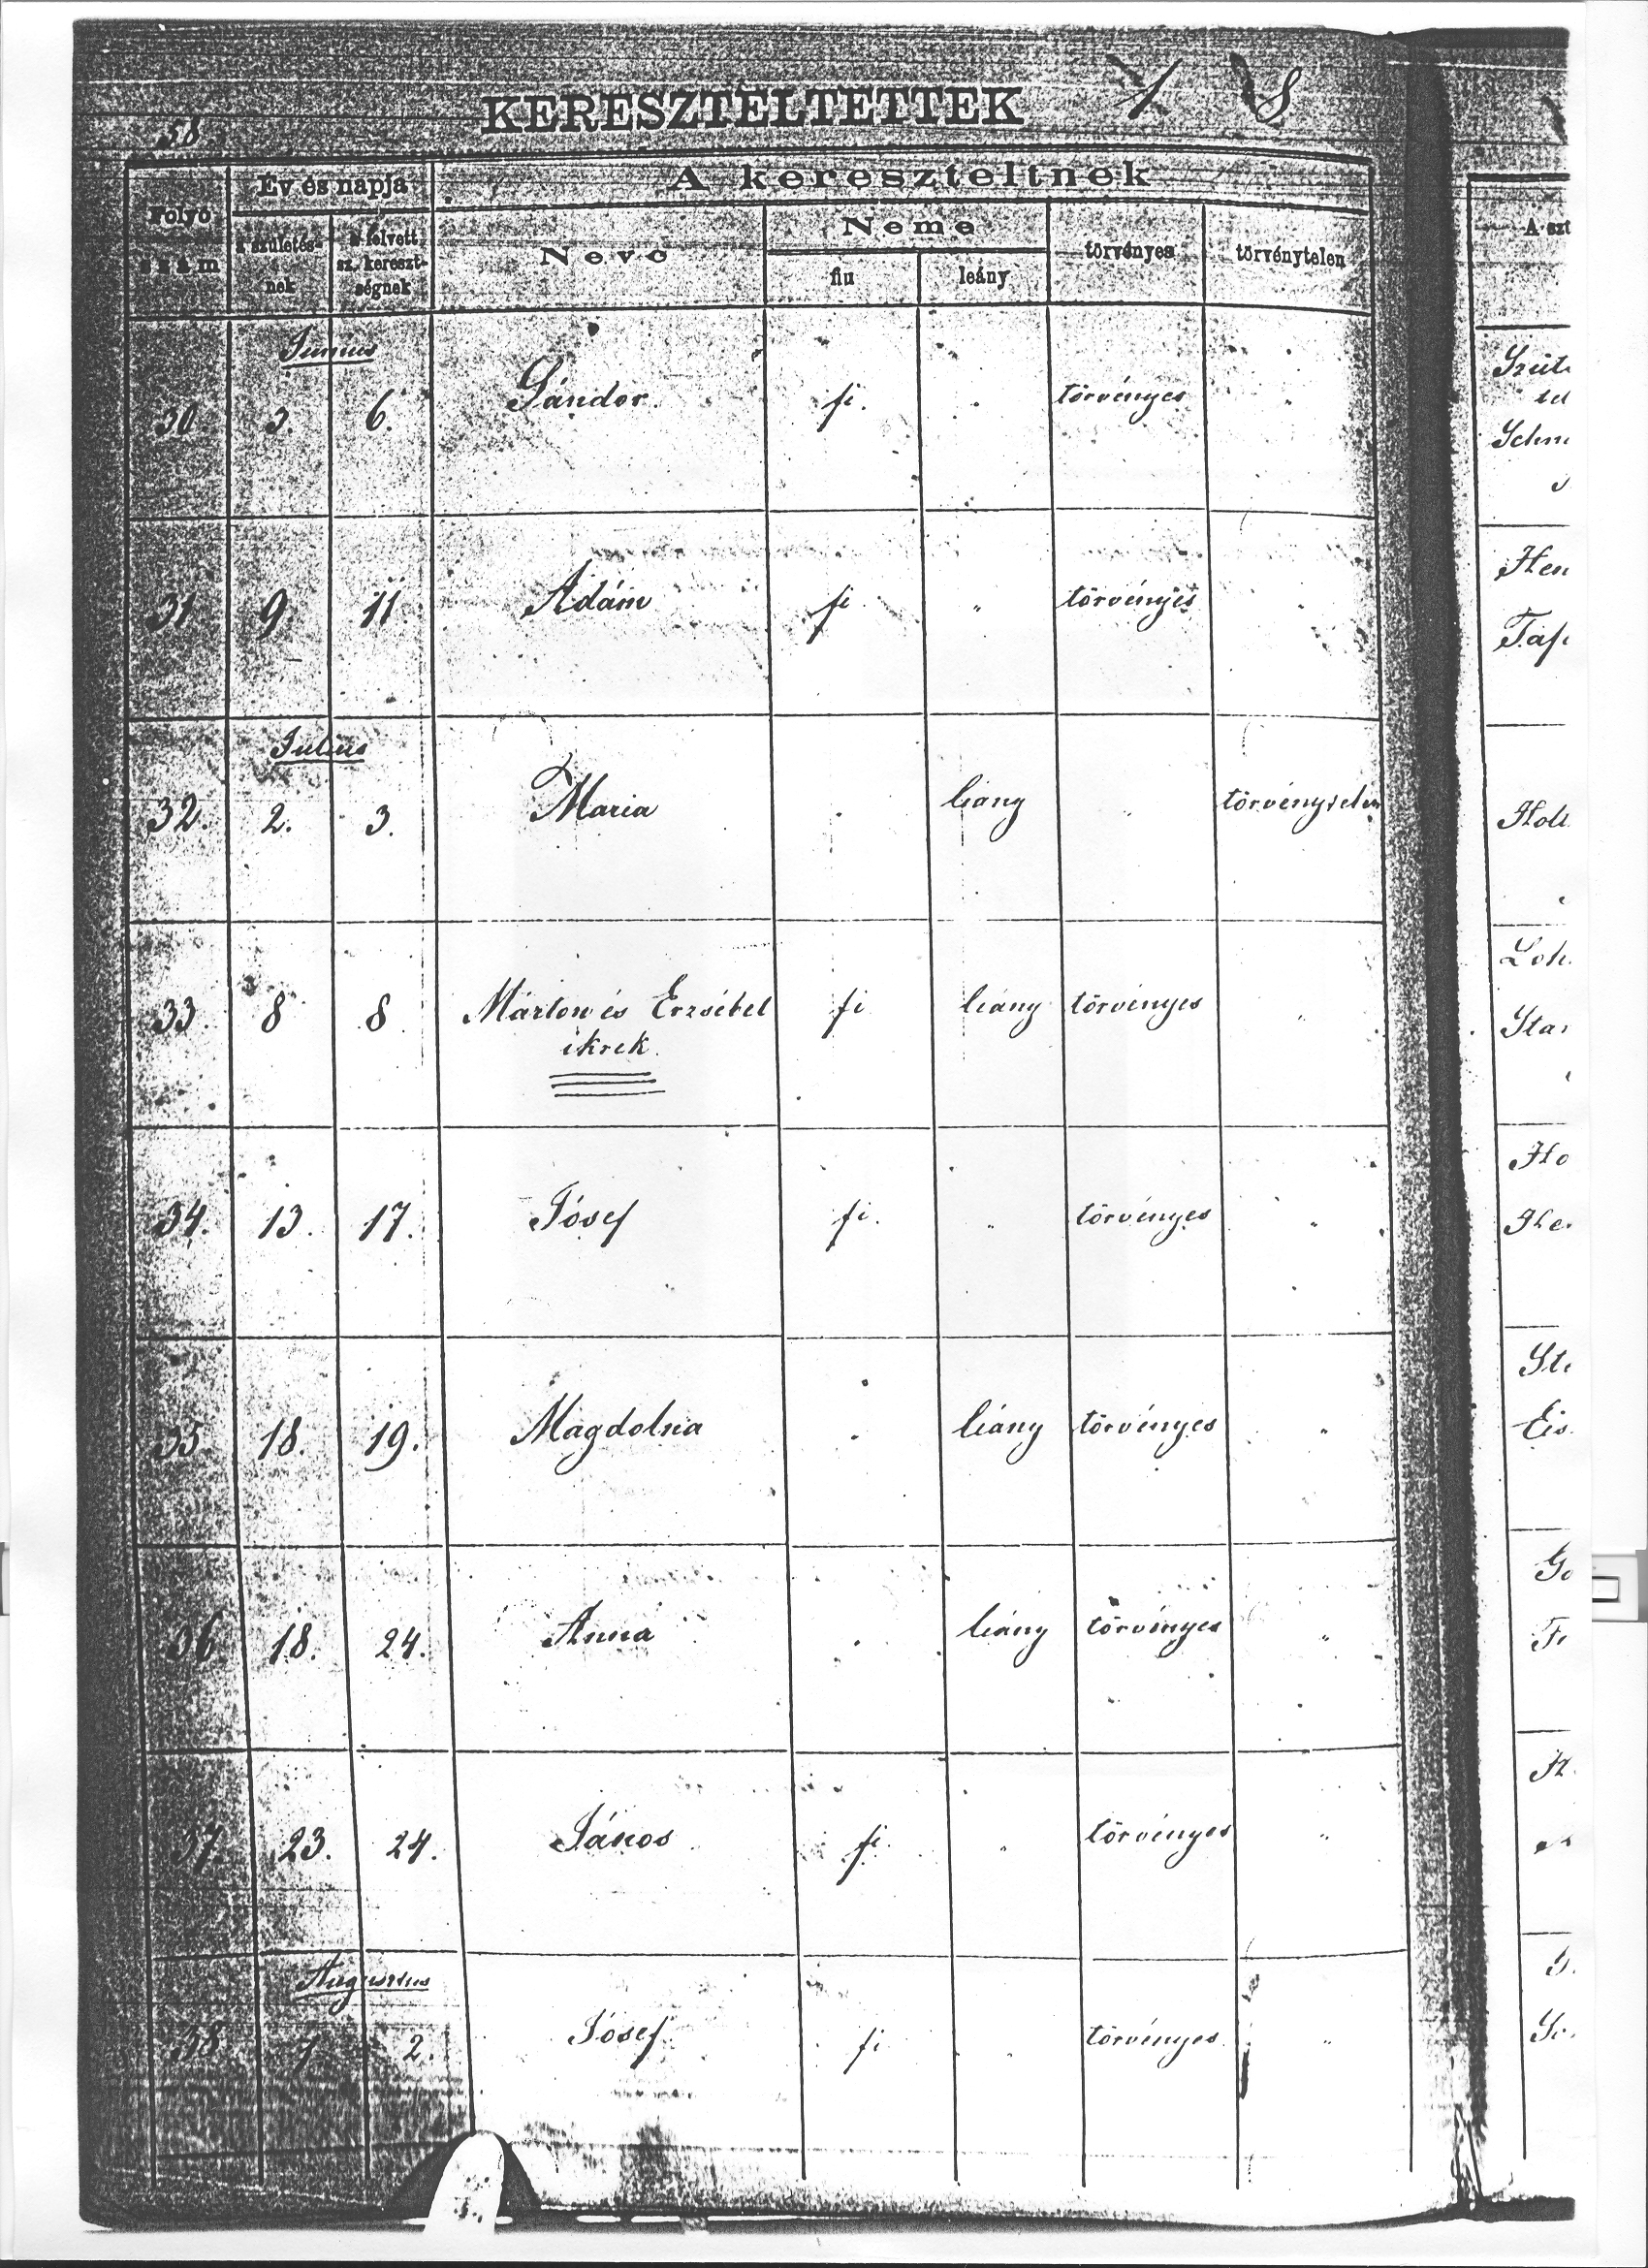 58
KERESZTELTETTEK
Folyó szám
Év és napja
a születés-nek
a felvett sz. kereszt-ségnek
A kereszteltnek
Neve
Neme
fiu
leány
törvényes
törvénytelen
A szt
Junius
30. 3. 6. Sándor fi. törvényes "
31 9 11. Adám fi " törvényes "
Julius
32. 2. 3. Maria leány " törvénytelen
33. 8 8. Márton és Erzsébet fi leány törvényes "
ikrek.
34. 13. 17. Jósef fi. " törvényes "
35. 18. 19. Magdolna leány törvényes "
36 18. 24. Anna leány törvényes "
37. 23. 24. János fi. " törvényes "
Augusztus
38 1 2. Jósef fi törvényes "